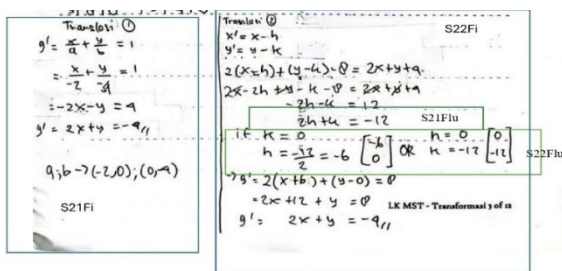 Translasi ①
g' = x/a + y/b = 1
= x/-2 + y/-4 = 1
= -2x-y = 4
g' = 2x+y = -4 //
a;b → (-2,0);(0,-4)
S21Fi
Translasi ②
S22Fi
x' = x-h
y' = y-k
2(x-h)+(y-k)-8 = 2x+y+4
2x-2h+y-k-8 = 2x+y+4
-2h-k = 12
2h+k = -12
S21Flu
if k = 0
h = -12/2 = -6 [-6 0] OR
h = 0
k = -12 [0 -12]
S22Flu
→ g' = 2(x+6)+(y-0) = 8
= 2x+12+y = 8
LK MST - Transformasi 3 of 12
g' = 2x+y = -4 //